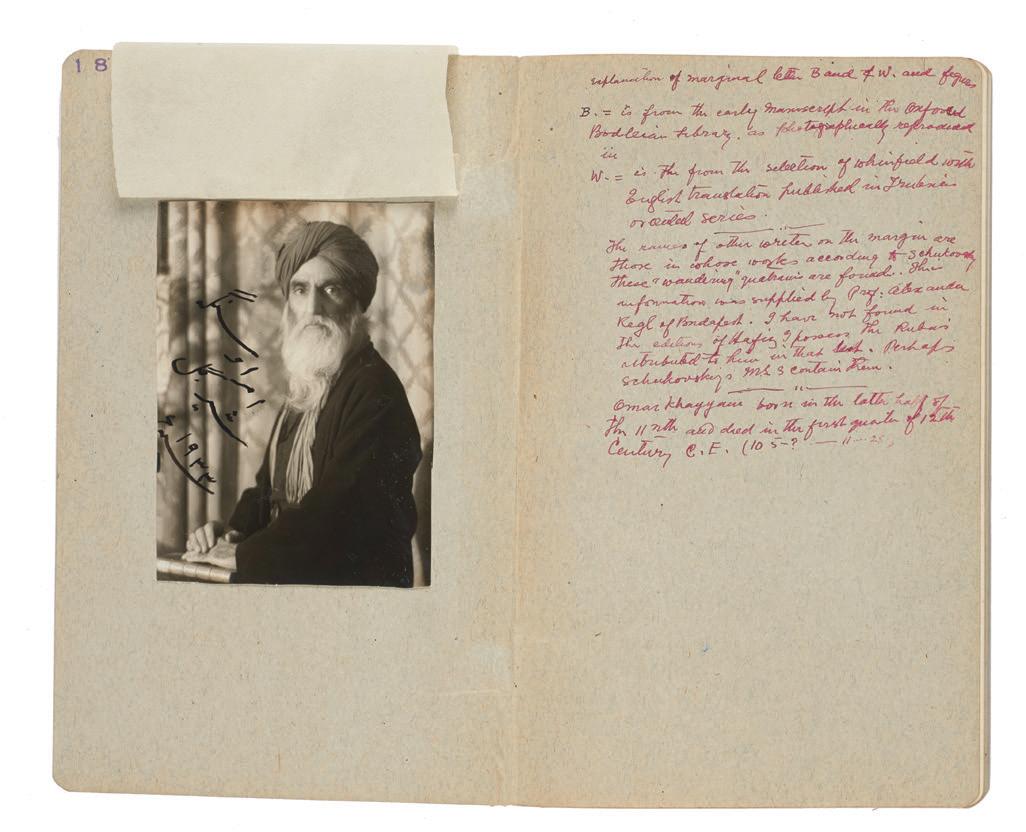 18
explanation of marginal letter B and of W. and figures
B. = is from the early manuscript in the Oxford
Bodleian Library, as photographically reproduced
in
W. = is the from the selection of Whinfield with
English translation published in
series.
The names of other writer on the margin are
those in whose works according to Schukovsky
these "wandering" quatrains are found. This
information was supplied by Prof. Alexander
Kegl of Budapest. I have not found in
the editions of Hafiz I possess the Rubais
attributed to him in that list. Perhaps
Schukovskijs MSS contain them.
Omar Khayyam born in the latter half of
the 11nth and died in the first quarter of 12th
Century C.E. (105-? — 11
۱۹۳۳